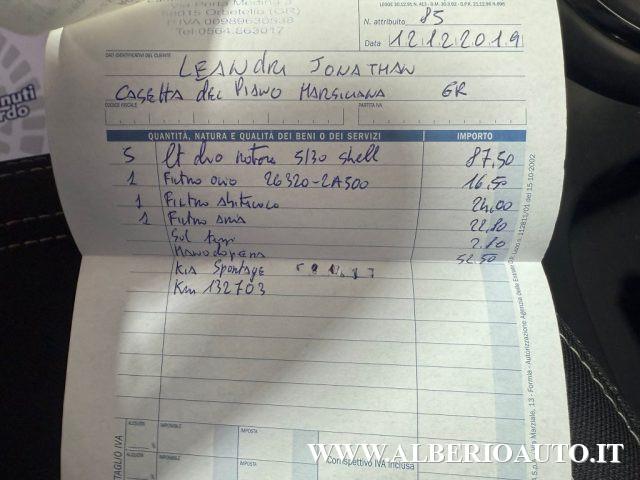 Via Porta Medina
58015 Orbetello (GR)
P.IVA 00989630538
Tel 0564.863017
LEGGE 30.12.91, N. 413 - D.M. 30.3.92 - D.P.R. 21.12.96 N.696
N. attribuito 85
Data 12 12 2019
DATI IDENTIFICATIVI DEL CLIENTE
LEANDRI JONATHAN
CASETTA DEL PIANO MARSILIANA GR
CODICE FISCALE PARTITA IVA
QUANTITÀ, NATURA E QUALITÀ DEI BENI O DEI SERVIZI IMPORTO
5 lt olio motore 5/30 shell 87,50
1 Filtro olio 26320-2A500 16,50
1 Filtro abitacolo 24,00
1 Filtro aria 22,80
2.80
Manodopera 52.50
KIA Sportage
Km 132703
DETTAGLIO IVA
ALIQUOTA IMPONIBILE IMPOSTA
%
ALIQUOTA IMPONIBILE IMPOSTA
%
Corrispettivo IVA inclusa
nuti
rdo
Marziale, 13 - Formia - Autorizzazione Agenzia delle Entrate
del 15-10-2002
WWW.ALBERIOAUTO.IT